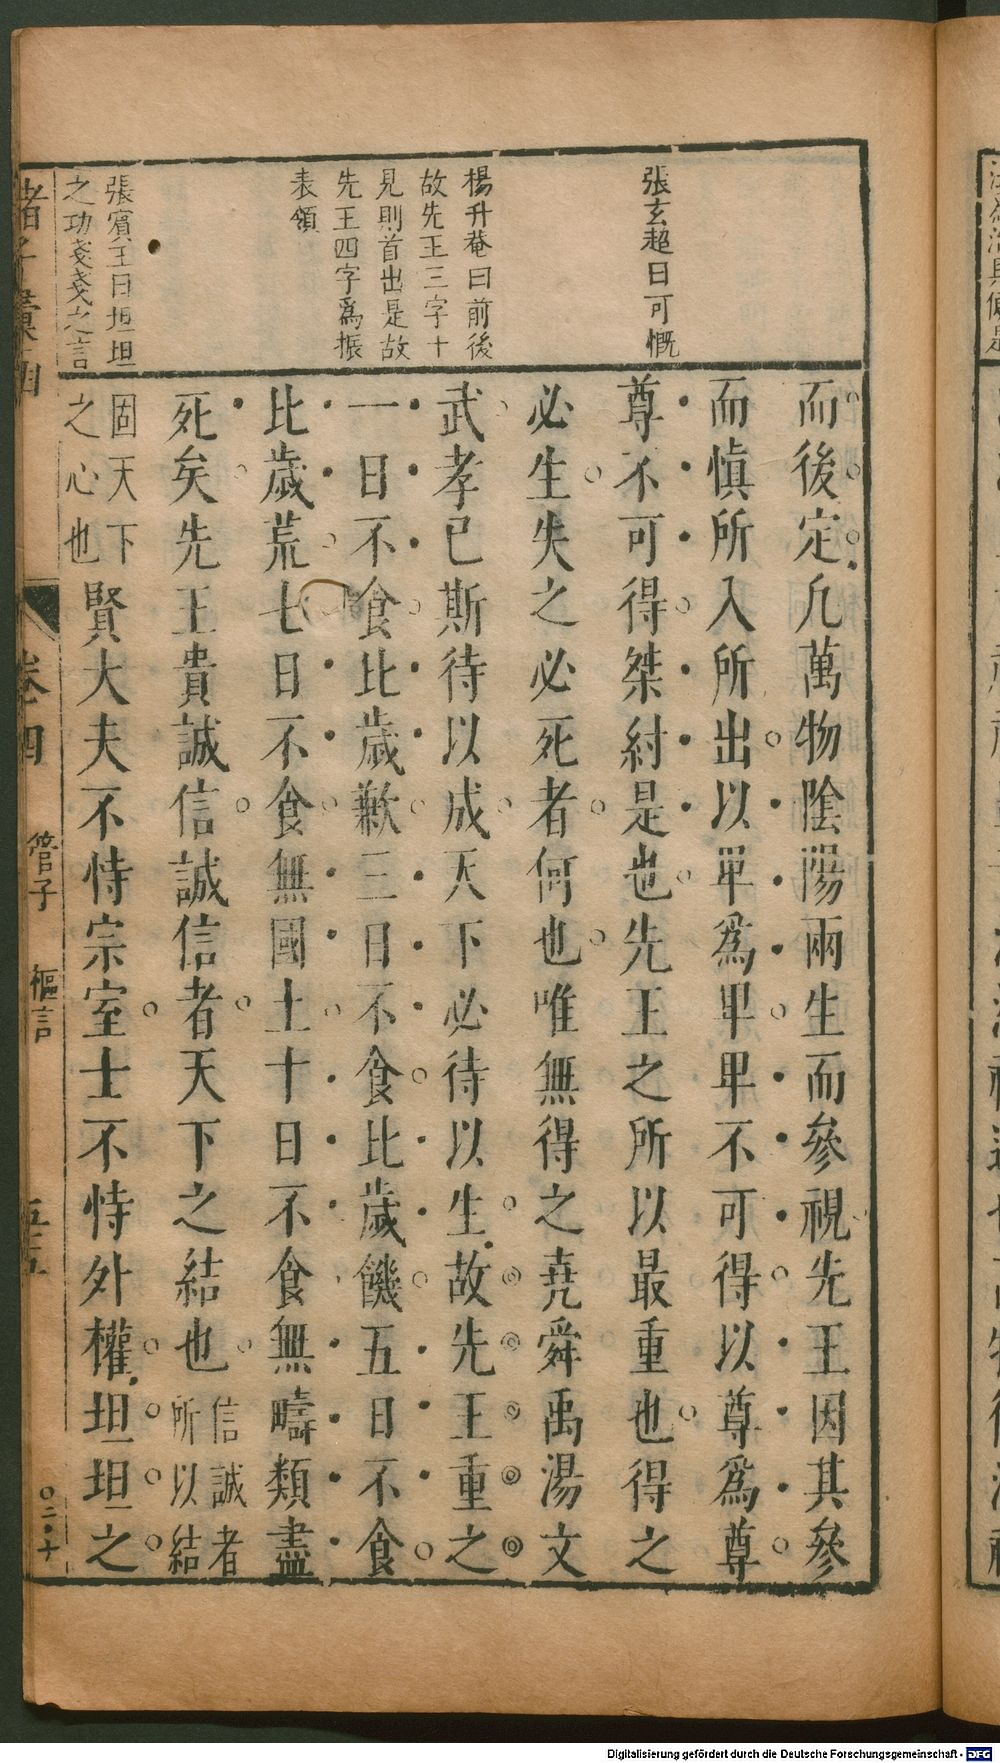 張玄超曰可慨
楊升菴曰前後
故先王三字十
見則首出是故
先王四字爲振
表領
張賓王曰坦坦
之功戔戔之言
而後定凡萬物陰陽兩生而參視先王因其參
而慎所入所出以卑爲卑卑不可得以尊爲尊
尊不可得桀紂是也先王之所以最重也得之
必生失之必死者何也唯無得之堯舜禹湯文
武孝已斯待以成天下必待以生故先王重之
一日不食比歲歉三日不食比歲饑五日不食
比歲荒七日不食無國土十日不食無疇類盡
死矣先王貴誠信誠信者天下之結也信誠者
所以結
固天下
之心也賢大夫不恃宗室士不恃外權坦坦之
諸子彙函
卷四
管子
樞言
五十五
〇二・十
Digitalisierung gefördert durch die Deutsche Forschungsgemeinschaft - DFG